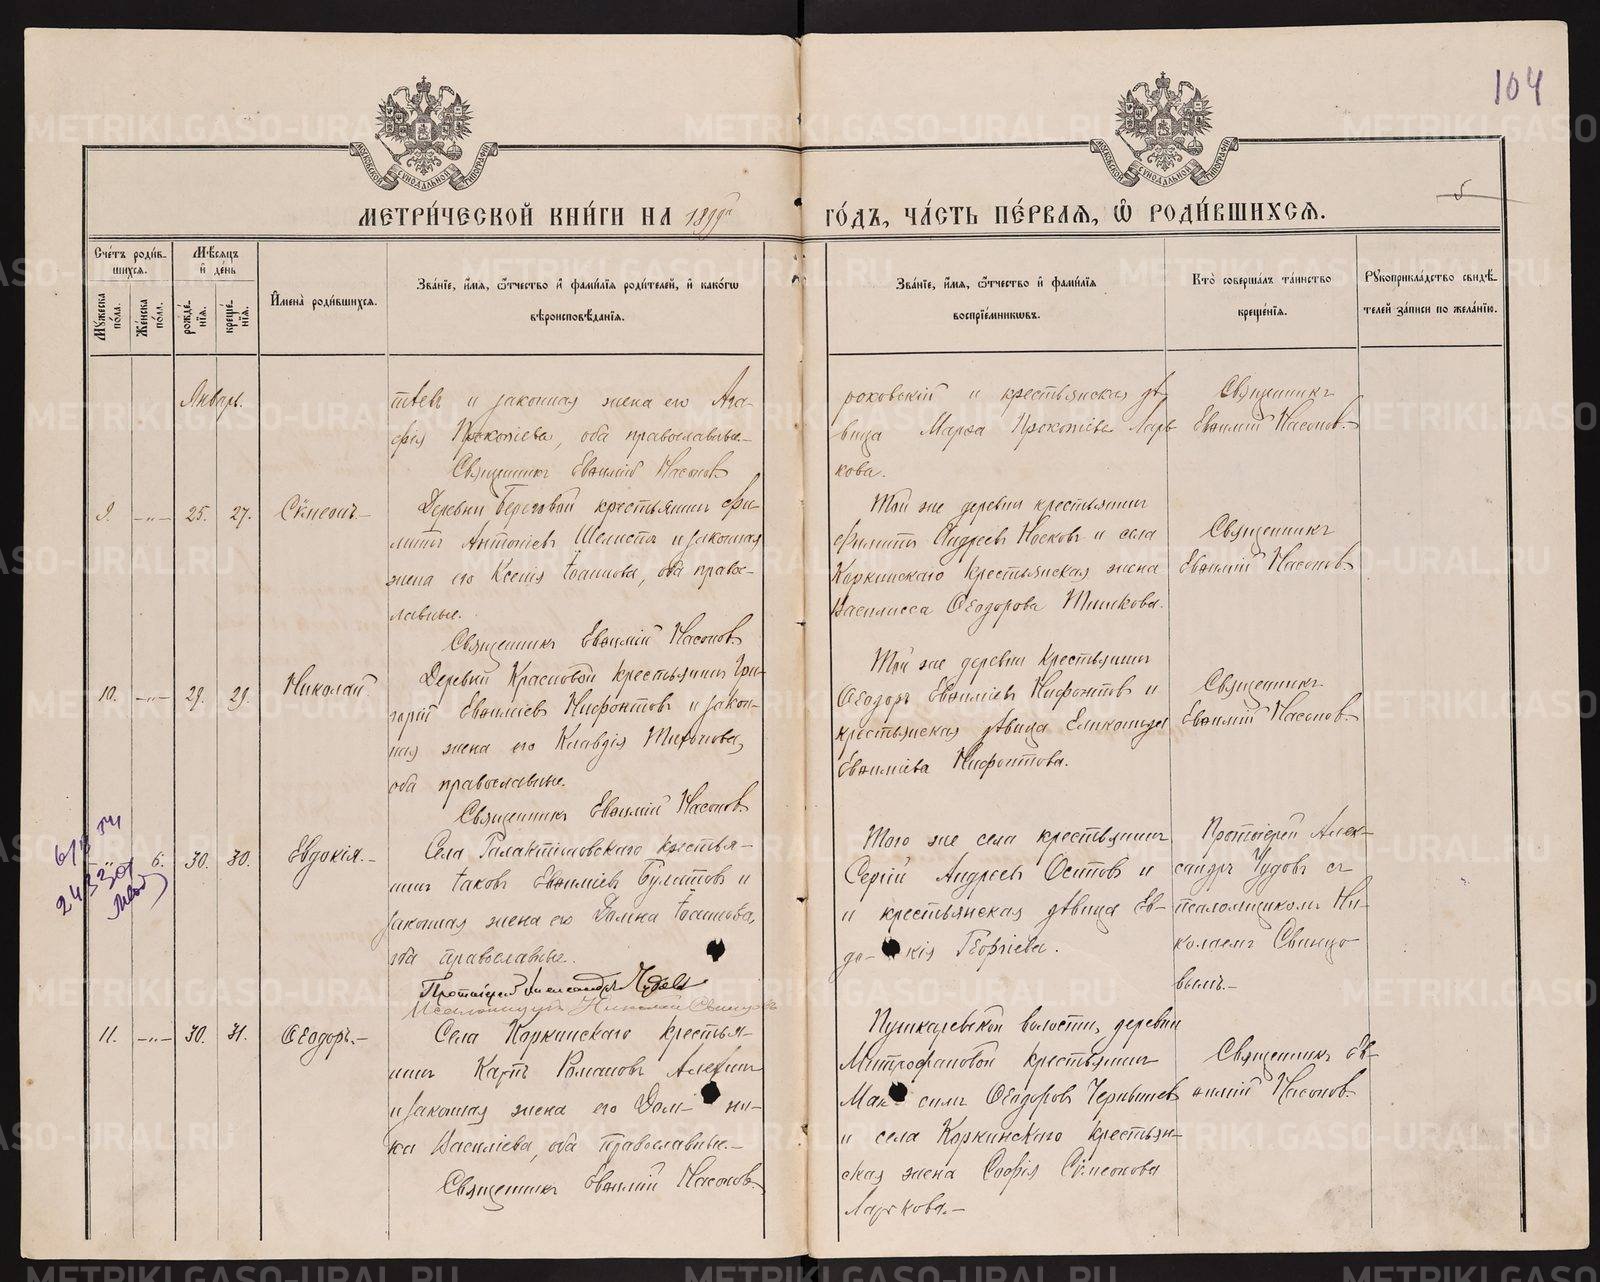 104
5
МЕТРИ́ЧЕСКОЙ КНИ́ГИ НА 1899й ГО́ДЪ, ЧА́СТЬ ПЕ́РВАѦ, Ѡ҆ РОДИ́ВШИХСѦ.
Сче́тъ роди́в-
шихсѧ.
Мꙋ́жеска по́ла.
Же́нска по́ла.
Мѣ́сѧцъ
и҆ де́нь
рожде́-
нїѧ.
креще́-
нїѧ.
И҆мена̀ роди́вшихсѧ.
Зва́нїе, и҆́мѧ, ѻ҆́тчество и҆ фамилїѧ роди́телей, и҆ како́гѡ
вѣроисповѣ́данїѧ.
Зва́нїе, и҆́мѧ, ѻ҆́тчество и҆ фами́лїѧ
воспрїе́мникѡвъ.
Кто̀ соверша́лъ та́инство
креще́нїѧ.
Рꙋкоприкла́дство свидѣ́-
телей за́писи по жела́нїю.
Январь.
тѣевъ и законная жена его Ага-
фія Прокопіева, оба православные.
Священникъ Евѳимій Насонов.
роковскій и крестьянская дѣ-
вица Марѳа Прокопіева Ларь-
кова.
Священникъ
Евѳимій Насонов.
9. -"- 25. 27. Сѵмеонъ.-
Деревни Береговой крестьянинъ Фи-
липпъ Антоніевъ Шелистъ и законная
жена его Ксенія Іоаннова, оба право-
лавные.
Священникъ Евѳимій Насонов.
Той же деревни крестьянинъ
Филиппъ Андреевъ Носковъ и села
Коркинскаго крестьянская жена
Василисса Ѳеодорова Тишкова.
Священникъ
Евѳимій Насонов
10. -"- 29. 29. Николай.
Деревни Красновой крестьянинъ Гри-
горій Евѳиміевъ Нифонтовъ и закон-
ная жена его Клавдія Тихонова,
оба православные.
Священникъ Евѳимій Насонов.
Той же деревни крестьянинъ
Ѳеодоръ Евѳиміевъ Нифонтовъ и
крестьянская дѣвица Еликонида
Евѳиміева Нифонтова.
Священникъ
Евѳимій Насонов.
-"- 6. 30. 30. Евдокія.-
Села Галактіоновскаго крестья-
нинъ Іаковъ Евѳиміевъ Булатовъ и
законная жена его Домна Іоаннова,
оба православные.
Протоіерей Александръ Чудовъ
Псаломщикъ Николай Свинцовъ
Того же села крестьянинъ
Сергій Андреевъ Осиповъ и
и крестьянская дѣвица Ев-
до- кія Георгіева.
Протоіерей Алек-
сандръ Чудовъ съ
псаломщикомъ Ни-
колаемъ Свинцо-
вымъ.-
11. -"- 30. 31. Ѳеодоръ.-
Села Коркинскаго крестья-
нинъ Карпъ Романовъ Алехинъ
и законная жена его Дом- ни-
ка Василіева, оба православные.-
Священникъ Евѳимій Насонов.
Пушкаревской волости, деревни
Митрофановой крестьянинъ
Мак- симъ Ѳеодоровъ Чернышев
и села Коркинскаго крестьян-
ская жена Софія Сѵмеонова
Ларькова.-
Священникъ Ев-
ѳимій Насонов.
METRIKI.GASO-URAL.RU